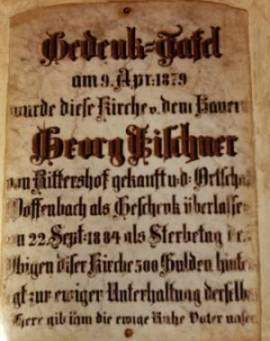 Gedenk=Tafel
am 9. Apr. 1879
wurde diese Kirche v. dem Bauern
Georg Fischner
von Rittershof gekauft u. d. Ortscha
Doffenbach als Geschenk überlasse
m 22. Sept. 1884 als Sterbetag des
Obigen diser Kirche 500 Gulden hinte
gt zur ewiger Unterhaltung derselbe
Herr gib ihm die ewige Ruhe Vater unse